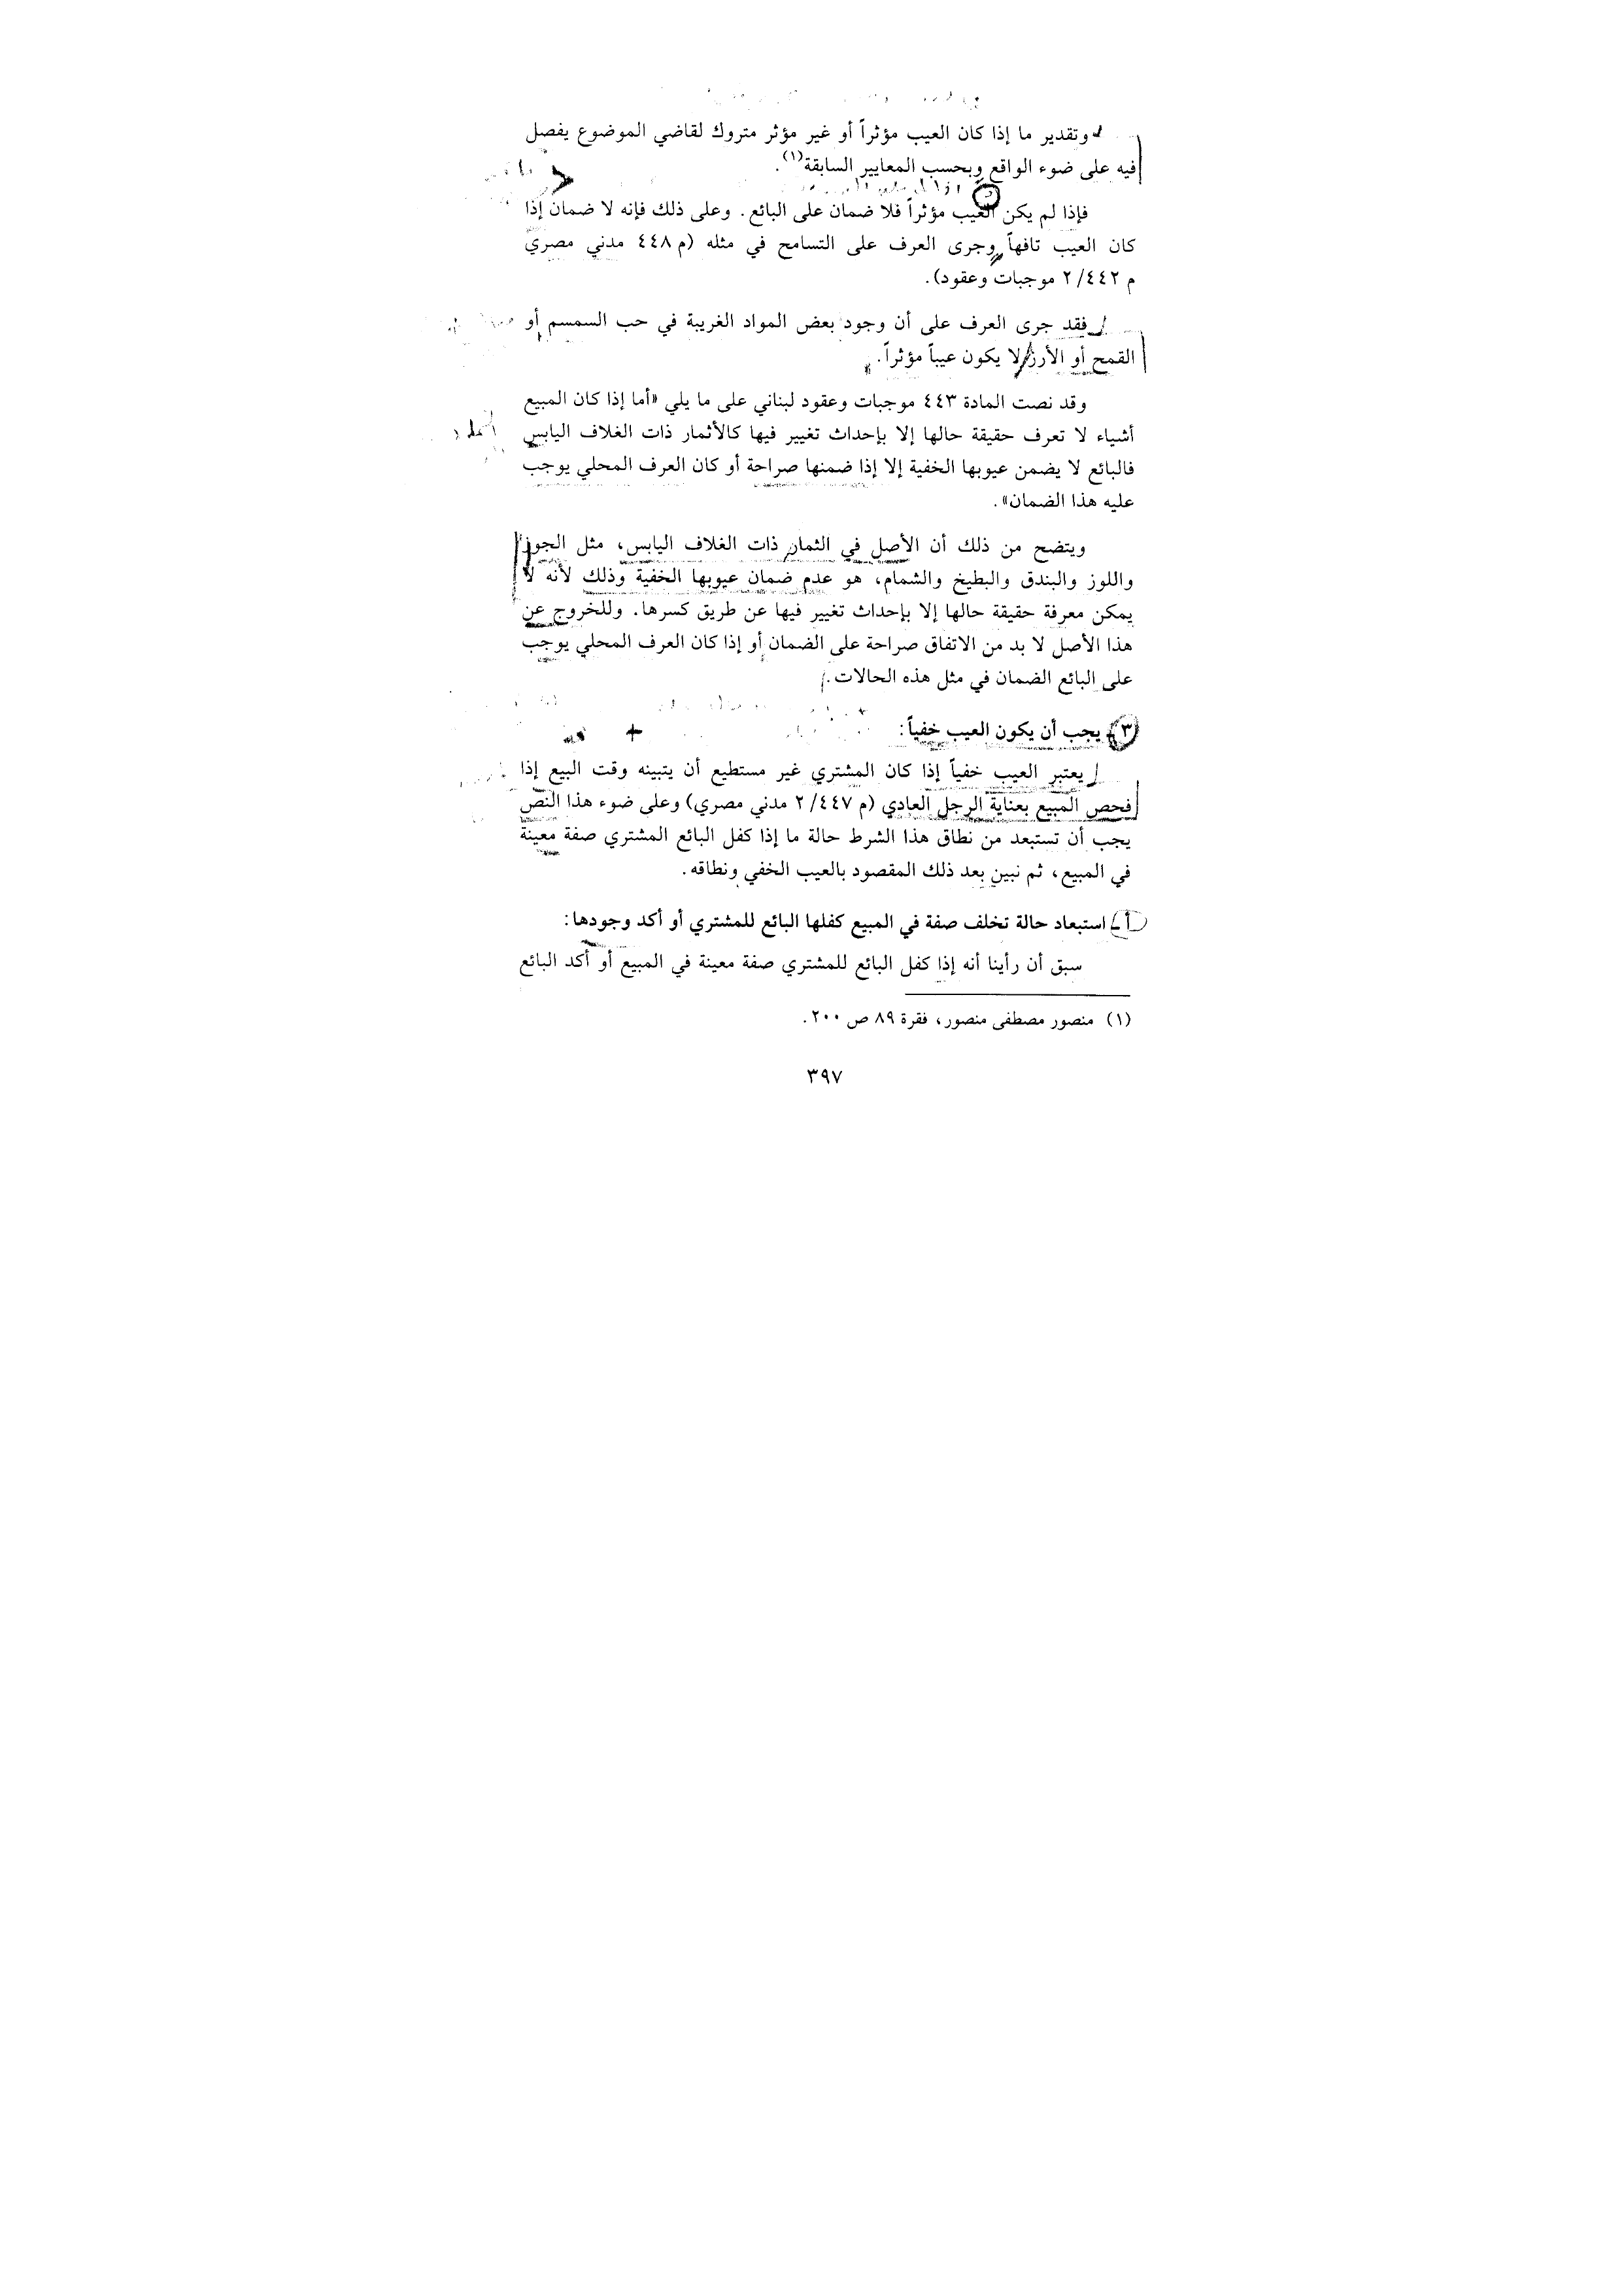 وتقدير ما إذا كان العيب مؤثراً أو غير مؤثر متروك لقاضي الموضوع يفصل
فيه على ضوء الواقع وبحسب المعايير السابقة(١).
فإذا لم يكن العيب مؤثراً فلا ضمان على البائع. وعلى ذلك فإنه لا ضمان إذا
كان العيب تافهاً وجرى العرف على التسامح في مثله (م ٤٤٨ مدني مصري
م ٢/٤٤٢ موجبات وعقود).
فقد جرى العرف على أن وجود بعض المواد الغريبة في حب السمسم أو
القمح أو الأرز لا يكون عيباً مؤثراً.
وقد نصت المادة ٤٤٣ موجبات وعقود لبناني على ما يلي «أما إذا كان المبيع
أشياء لا تعرف حقيقة حالها إلا بإحداث تغيير فيها كالأثمار ذات الغلاف اليابس
فالبائع لا يضمن عيوبها الخفية إلا إذا ضمنها صراحة أو كان العرف المحلي يوجب
عليه هذا الضمان».
ويتضح من ذلك أن الأصل في الثمار ذات الغلاف اليابس، مثل الجوز
واللوز والبندق والبطيخ والشمام، هو عدم ضمان عيوبها الخفية وذلك لأنه لا
يمكن معرفة حقيقة حالها إلا بإحداث تغيير فيها عن طريق كسرها. وللخروج عن
هذا الأصل لا بد من الاتفاق صراحة على الضمان أو إذا كان العرف المحلي يوجب
على البائع الضمان في مثل هذه الحالات.
٣- يجب أن يكون العيب خفياً:
يعتبر العيب خفياً إذا كان المشتري غير مستطيع أن يتبينه وقت البيع إذا
فحص المبيع بعناية الرجل العادي (م ٢/٤٤٧ مدني مصري) وعلى ضوء هذا النص
يجب أن تستبعد من نطاق هذا الشرط حالة ما إذا كفل البائع المشتري صفة معينة
في المبيع، ثم نبين بعد ذلك المقصود بالعيب الخفي ونطاقه.
أ- استبعاد حالة تخلف صفة في المبيع كفلها البائع للمشتري أو أكد وجودها:
سبق أن رأينا أنه إذا كفل البائع للمشتري صفة معينة في المبيع أو أكد البائع
(١) منصور مصطفى منصور، فقرة ٨٩ ص ٢٠٠.
٣٩٧